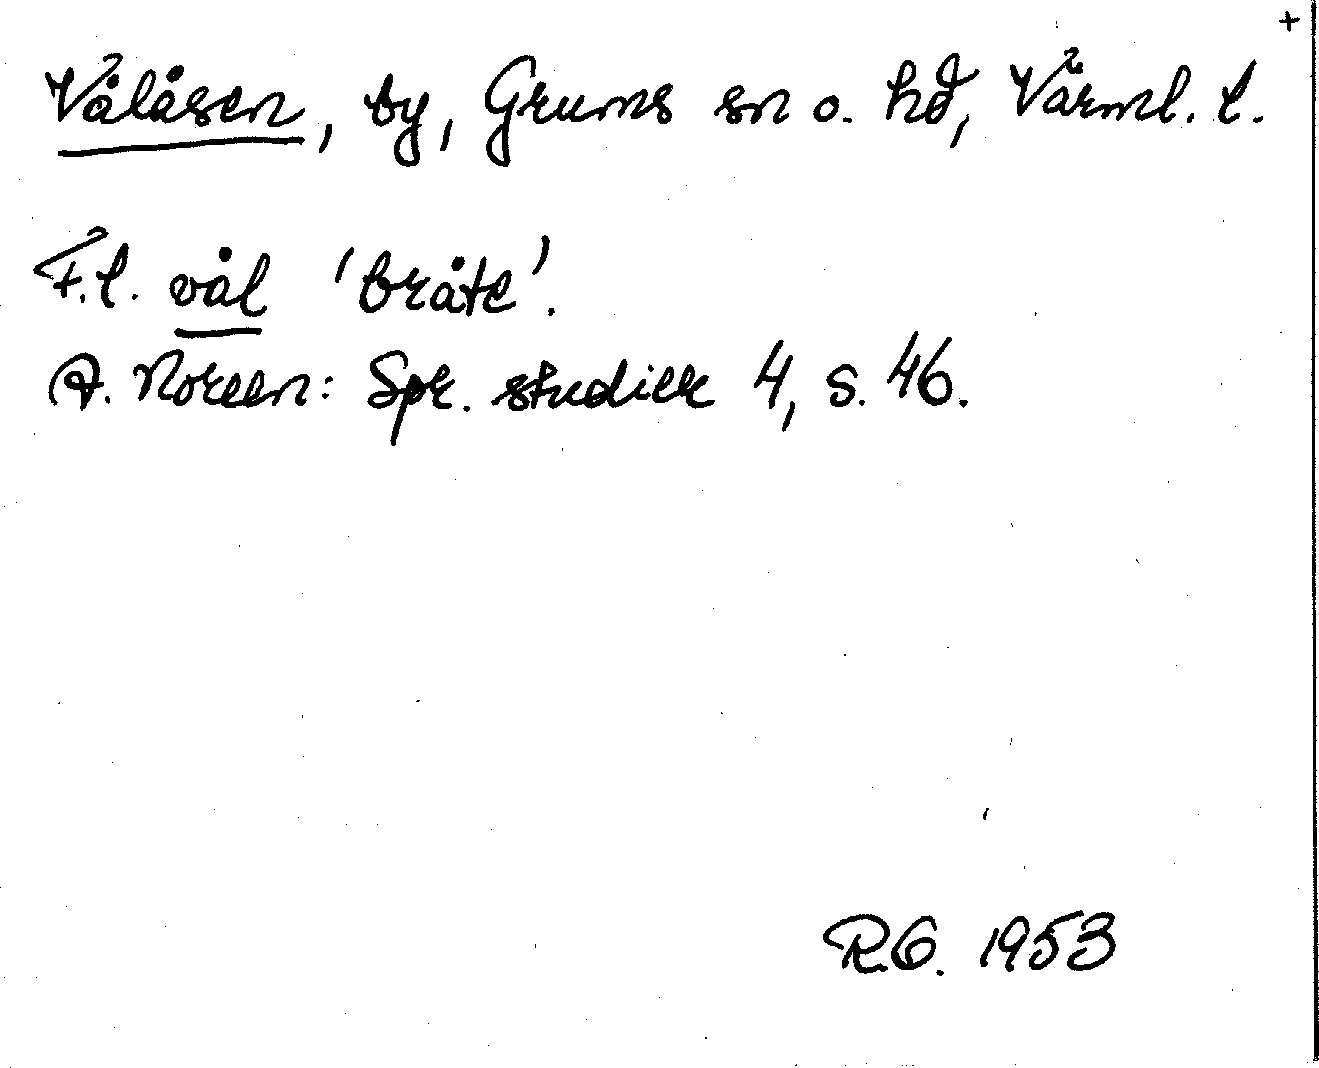 +
Vålåsen, by, Grums sn o. hd, Värml. l.
F.l. vål 'bråte'.
A. Noreen: Spr. studier 4, s. 46.
RG. 1953